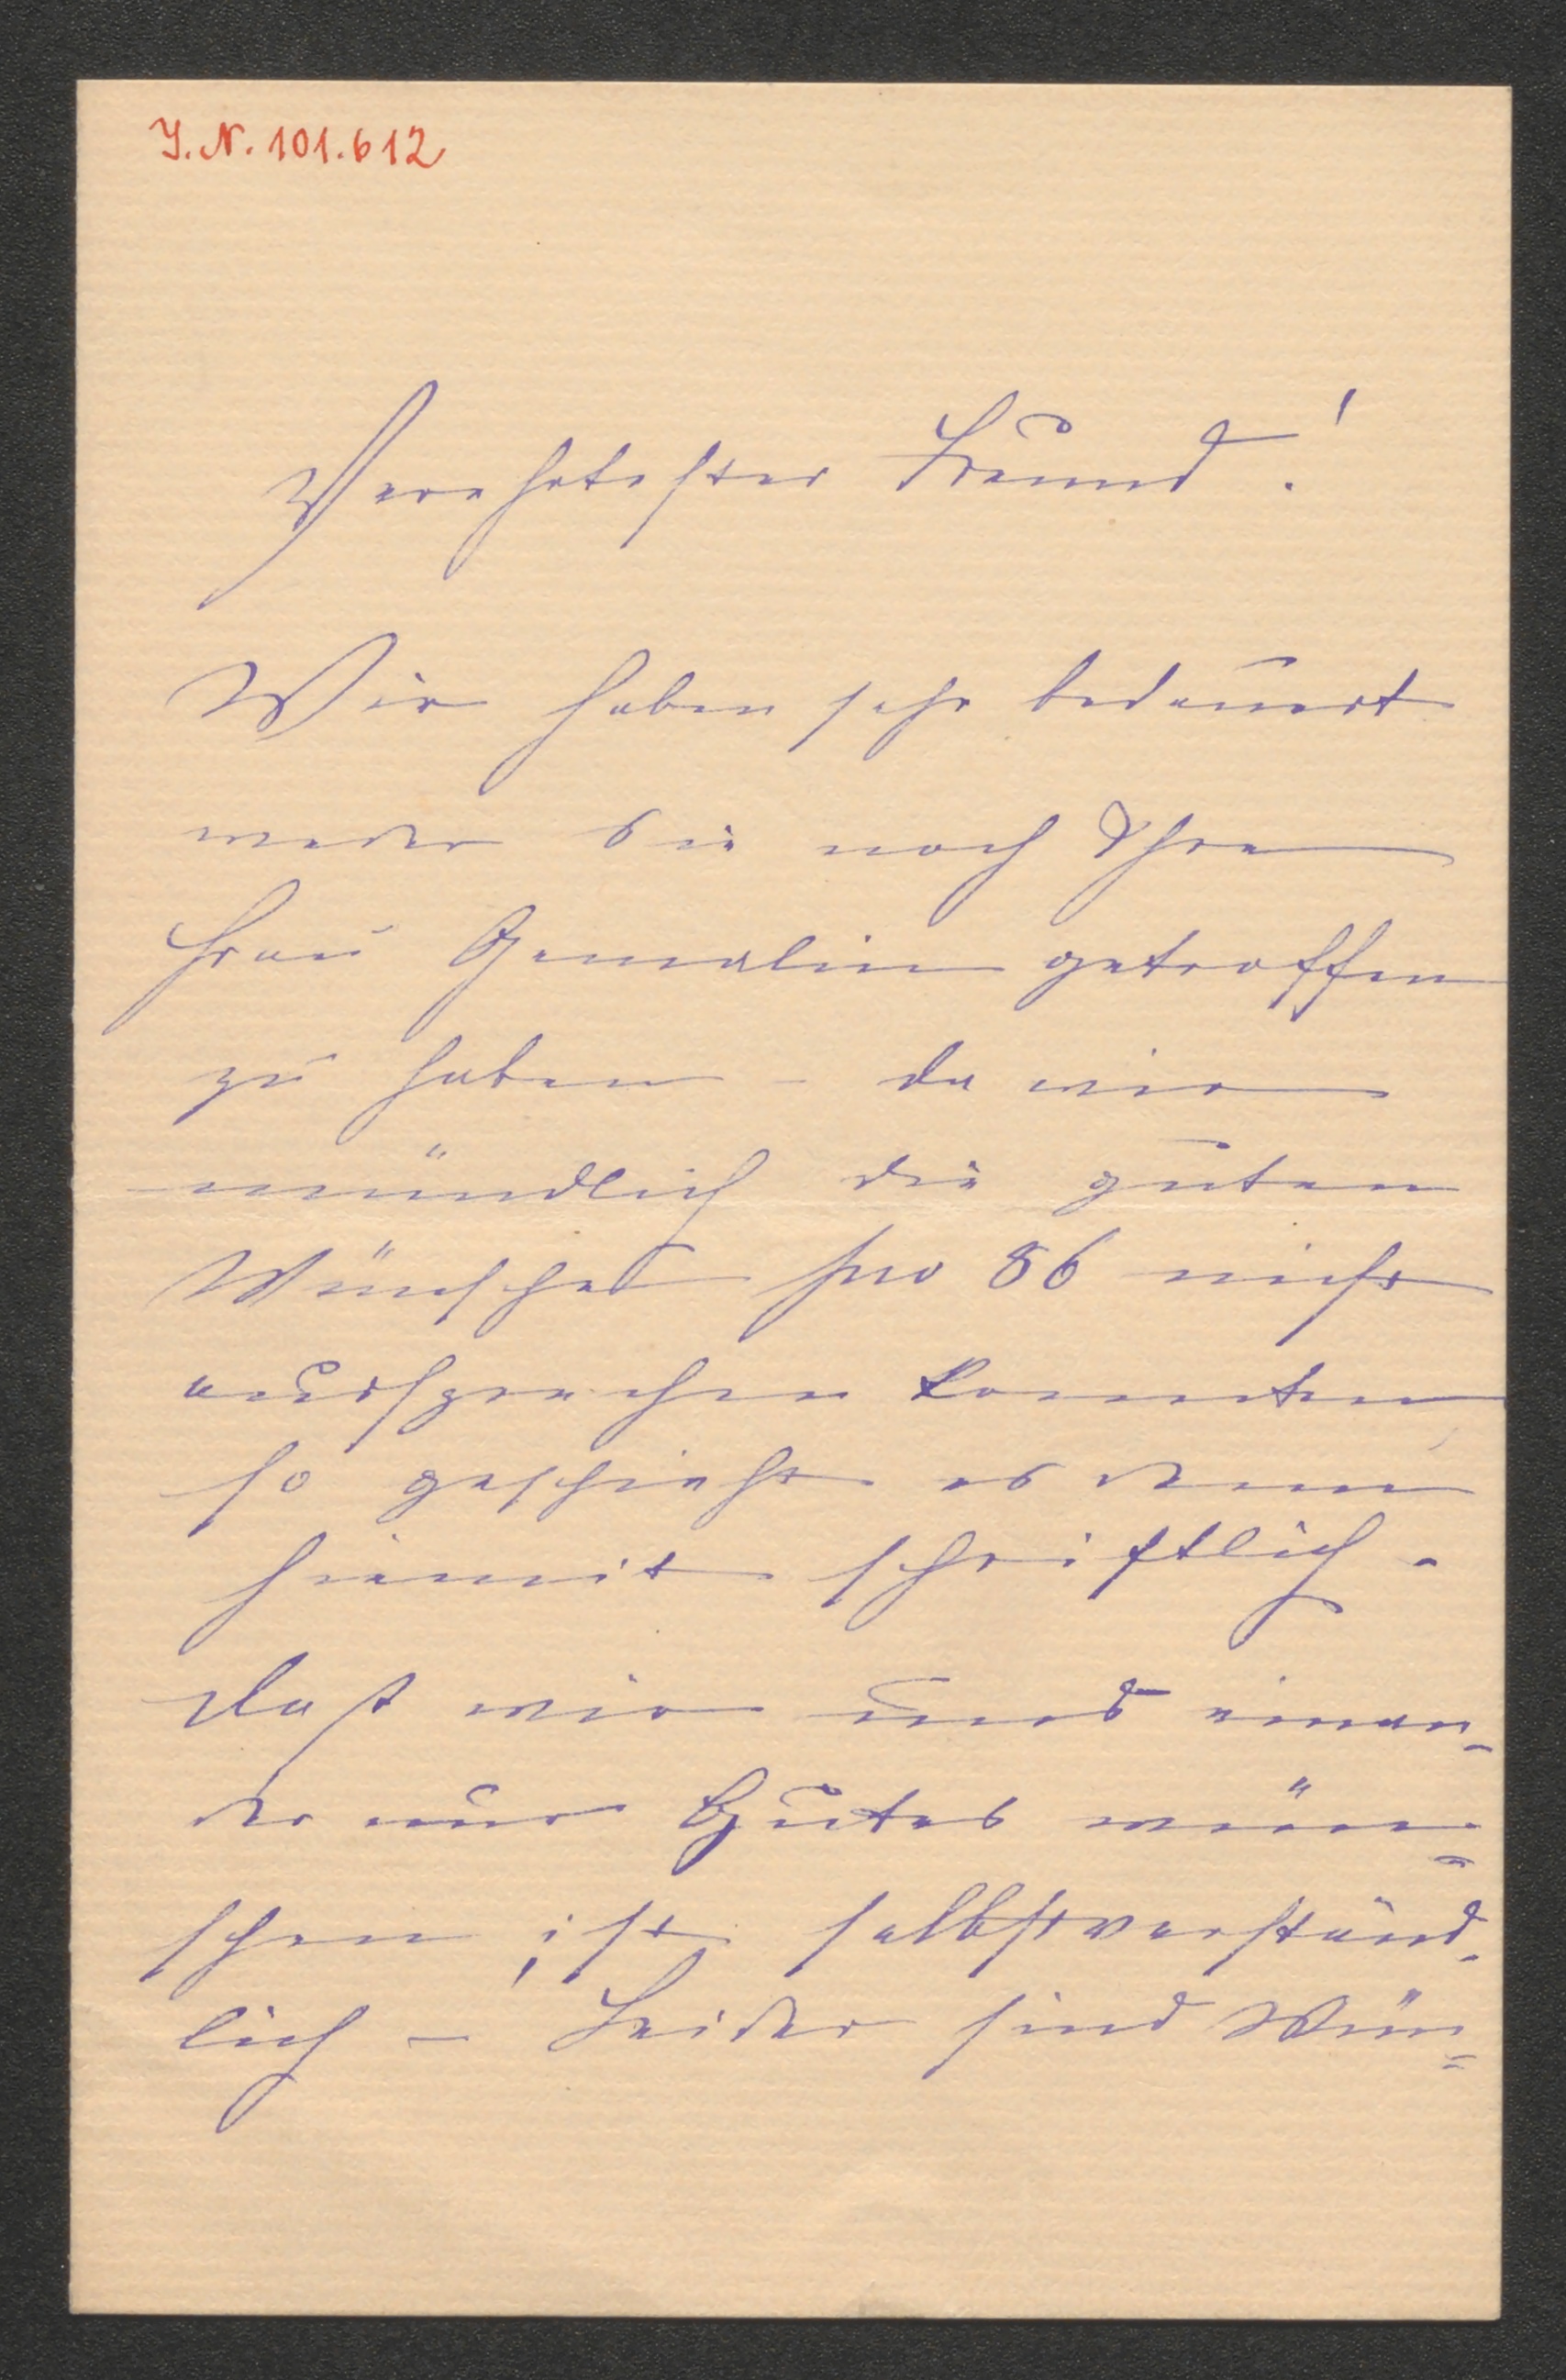 J.N. 101.612
Verehrtester Freund!
Wir haben sehr bedauert
weder Sie noch Ihre
Frau Gemalin getroffen
zu haben – da wir
mündlich die guten
Wünsche pro 86 nicht
aussprechen konnten
so geschieht es denn
hiemit schriftlich.
Daß wir uns einan-
der nur Gutes wün=
schen, ist selbstverständ-
lich – Leider sind Wün=